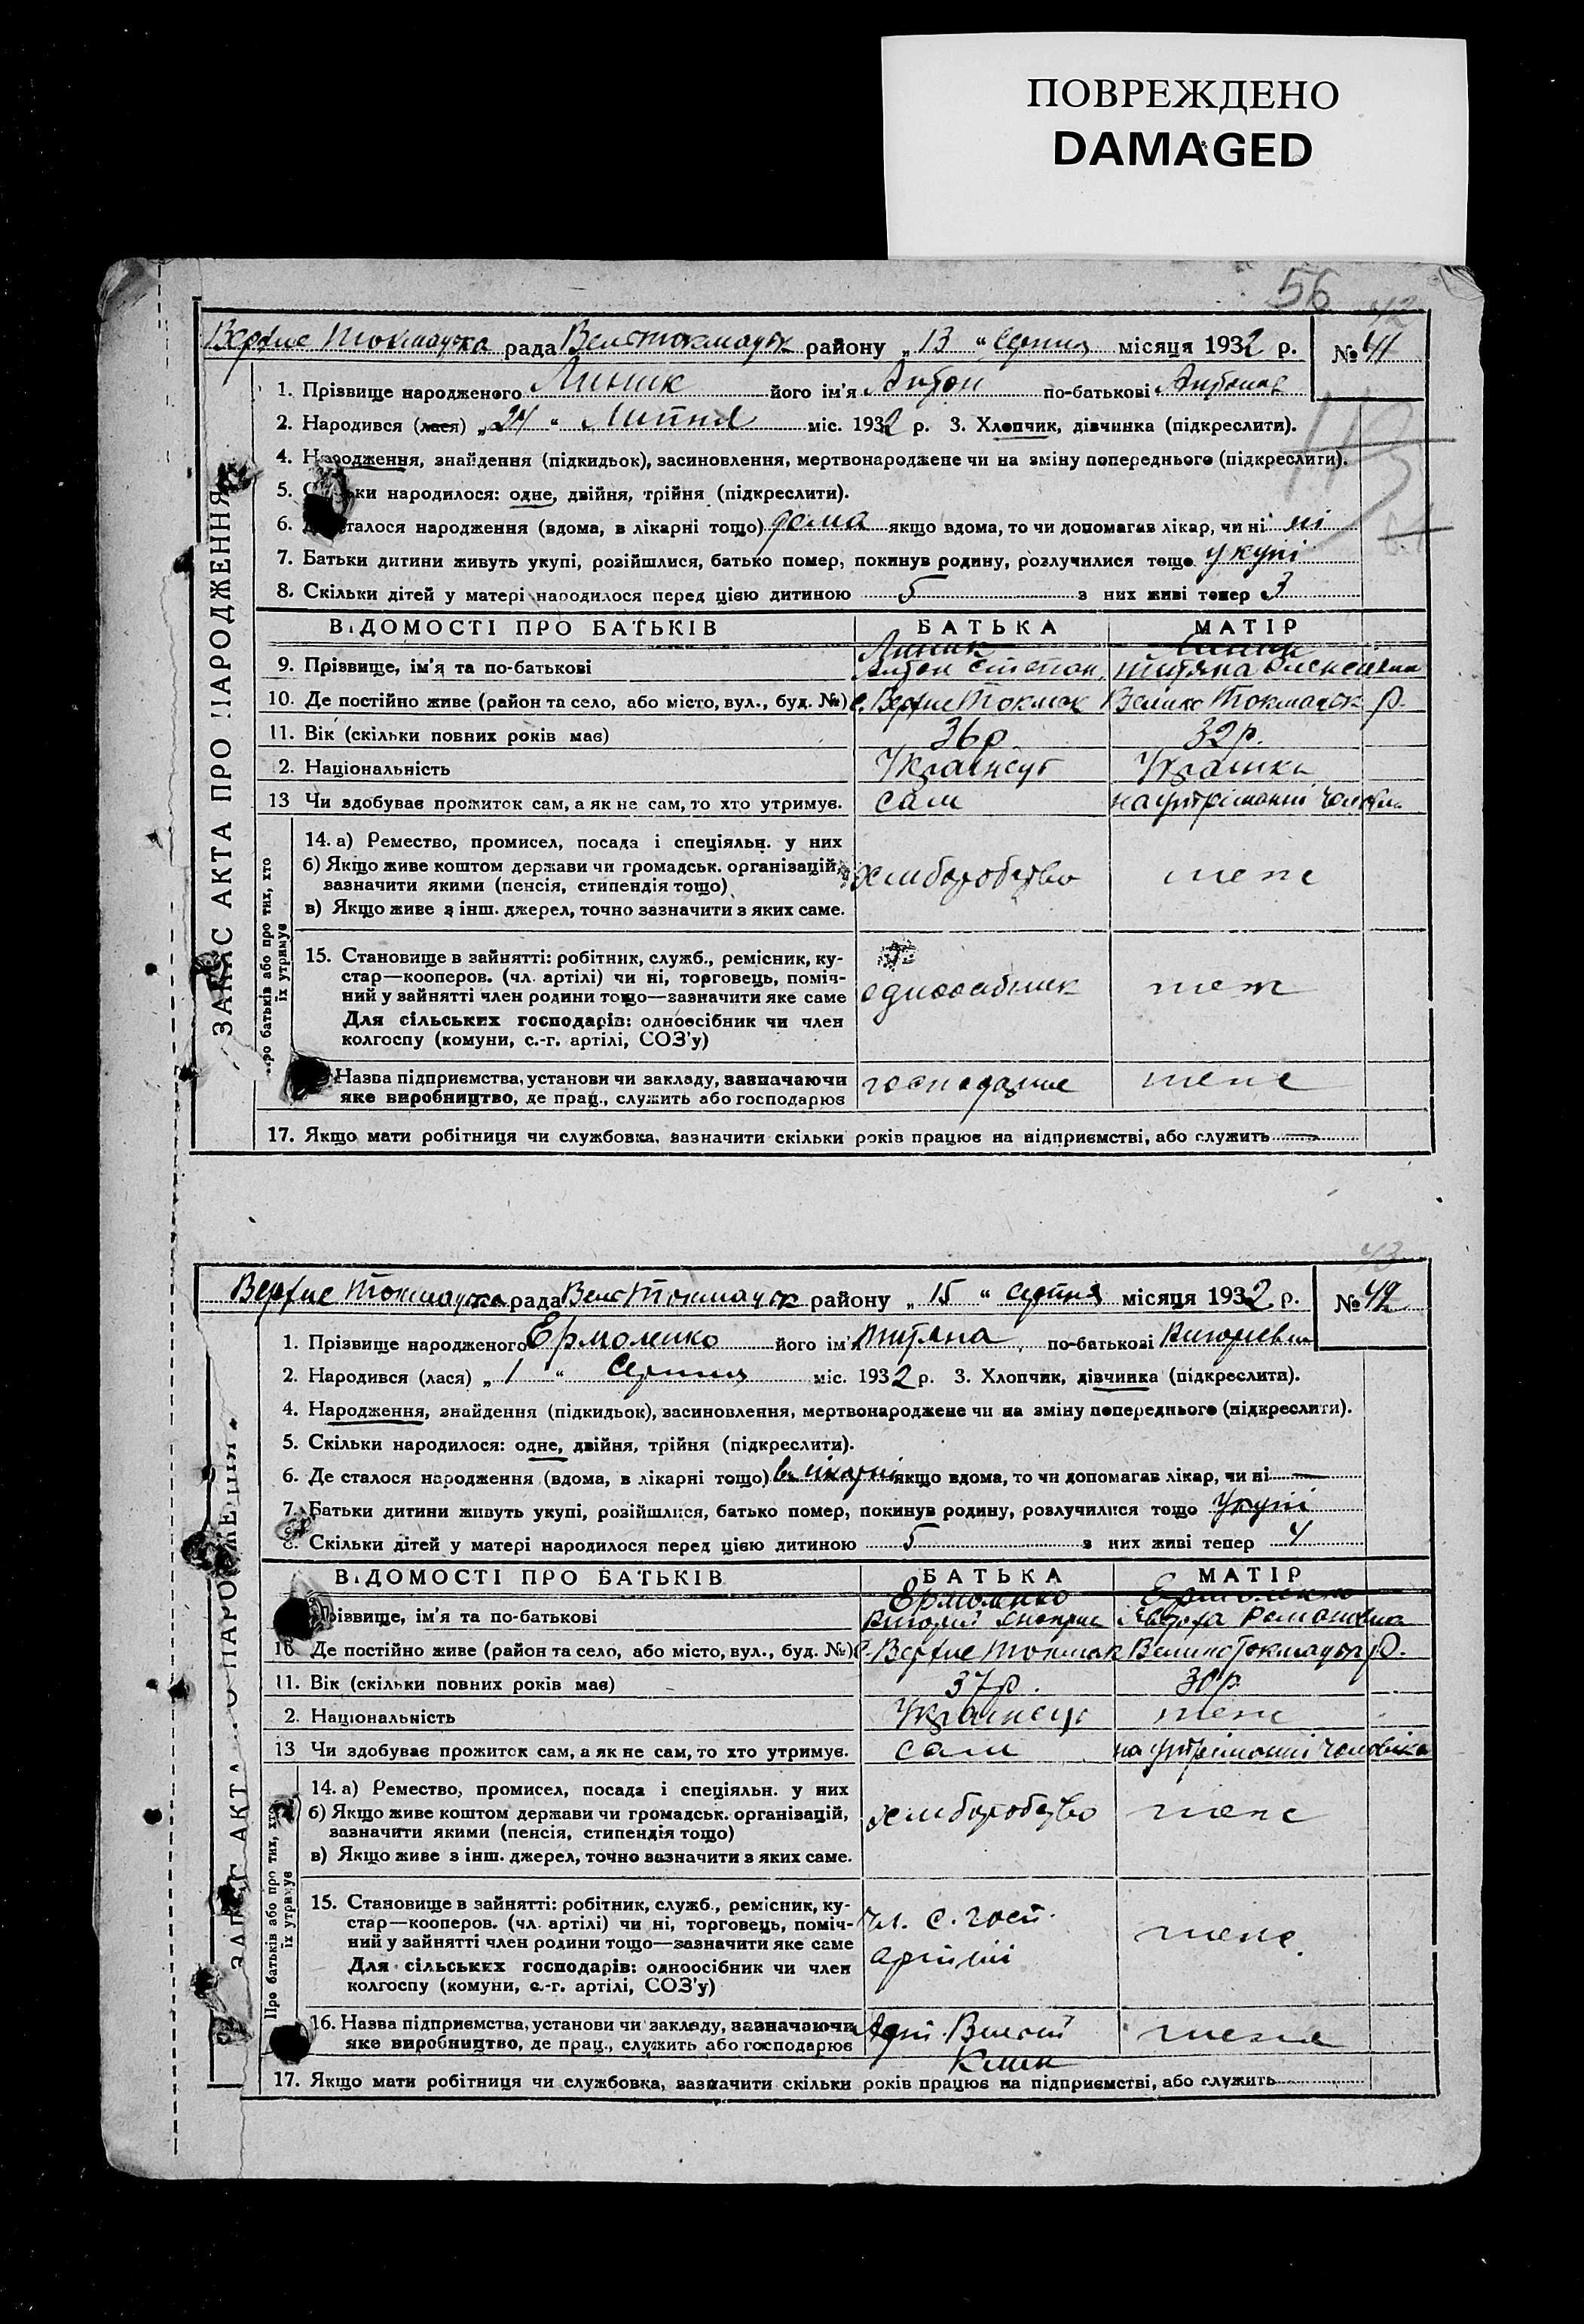 ПОВРЕЖДЕНО
DAMAGED
56
42
Верхне Токмацька рада Велстокмацьк району „13“ серпня місяця 1932 р. № 41
1. Прізвище народженого Линник його ім'я Антон по-батькові Антонов
2. Народився (лася) „24“ Липня міс. 1932 р. 3. Хлопчик, дівчинка (підкреслити).
4. Народження, знайдення (підкидьок), засиновлення, мертвонароджене чи на зміну попереднього (підкреслити).
5. ки народилося: одне, двійня, трійня (підкреслити).
6. талося народження (вдома, в лікарні тощо) дома якщо вдома, то чи допомагав лікар, чи ні ні
7. Батьки дитини живуть укупі, розійшлися, батько помер, покинув родину, розлучилися тощо укупі
8. Скільки дітей у матері народилося перед цією дитиною 5 з них живі тепер 3
ЗАПИС АКТА ПРО НАРОДЖЕННЯ
ВІДОМОСТІ ПРО БАТЬКІВ БАТЬКА МАТІР
Линник Линник
9. Прізвище, ім'я та по-батькові Антон Степан. Титяна
10. Де постійно живе (район та село, або місто, вул., буд. №) с. Верхне Токмак Велико Токмацьк р.
11. Вік (скільки повних років має) 36р 32р.
2. Національність Українець Українка
13 Чи здобуває прожиток сам, а як не сам, то хто утримує. сам на утріманні
про батьків або про тих, хто
їх утримує
14. а) Ремество, промисел, посада і спеціяльн. у них
б) Якщо живе коштом держави чи громадськ. організацій,
зазначити якими (пенсія, стипендія тощо) хліборобство теже
в) Якщо живе з інш. джерел, точно зазначити з яких саме.
15. Становище в зайнятті: робітник, служб., ремісник, ку-
стар—кооперов. (чл. артілі) чи ні, торговець, поміч-
ний у зайнятті член родини тощо—зазначити яке саме одноосібник теж
Для сільських господарів: одноосібник чи член
колгоспу (комуни, с.-г. артілі, СОЗ'у)
Назва підприємства, установи чи закладу, зазначаючи
яке виробництво, де прац., служить або господарює теже
17. Якщо мати робітниця чи службовка, зазначити скільки років працює на підприємстві, або служить —
43
Верхне Токмацька рада ВелсТокмацьк району „15“ серпня місяця 1932 р. № 42
1. Прізвище народженого Ермоленко його ім'я Титяна по-батькові Григоревна
2. Народився (лася) „1“ Серпня міс. 1932 р. 3. Хлопчик, дівчинка (підкреслити).
4. Народження, знайдення (підкидьок), засиновлення, мертвонароджене чи на зміну попереднього (підкреслити).
5. Скільки народилося: одне, двійня, трійня (підкреслити).
6. Де сталося народження (вдома, в лікарні тощо) в лікарні якщо вдома, то чи допомагав лікар, чи ні —
7. Батьки дитини живуть укупі, розійшлися, батько помер, покинув родину, розлучилися тощо Укупі
8. Скільки дітей у матері народилося перед цією дитиною 5 з них живі тепер 4
ВІДОМОСТІ ПРО БАТЬКІВ БАТЬКА МАТІР
Ермоленко Ермоленко
Прізвище, ім'я та по-батькові Григорий Романовна
10 Де постійно живе (район та село, або місто, вул., буд. №) с. Верхне Токмак ВеликоТокмацьк р.
11. Вік (скільки повних років має) 37р. 30р
2. Національність Українець теже
13 Чи здобуває прожиток сам, а як не сам, то хто утримує. сам на утріманні чоловіка
Про батьків або про тих, хто
їх утримує
14. а) Ремество, промисел, посада і спеціяльн. у них
б) Якщо живе коштом держави чи громадськ. організацій, хліборобство теже
зазначити якими (пенсія, стипендія тощо)
в) Якщо живе з інш. джерел, точно зазначити з яких саме.
15. Становище в зайнятті: робітник, служб., ремісник, ку-
стар—кооперов. (чл. артілі) чи ні, торговець, поміч- чл. с. госп.
ний у зайнятті член родини тощо—зазначити яке саме теже.
Для сільських господарів: одноосібник чи член артілі
колгоспу (комуни, с.-г. артілі, СОЗ'у)
16. Назва підприємства, установи чи закладу, зазначаючи
яке виробництво, де прац., служить або господарює теже
17. Якщо мати робітниця чи службовка, зазначити скільки років працює на підприємстві, або служить